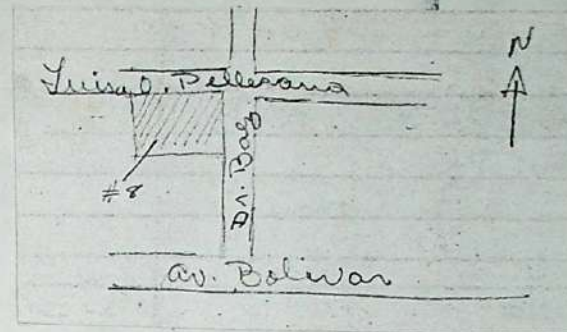 N
Luisa O. Pellerano
Dr. Báez
#8
Av. Bolívar